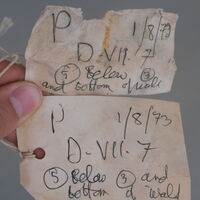 P 1/8/93
D-VII. 7
⑤ Below ③
and bottom of wall
P 1/8/93
D-VII. 7
⑤ Below ③ and
bottom of wall